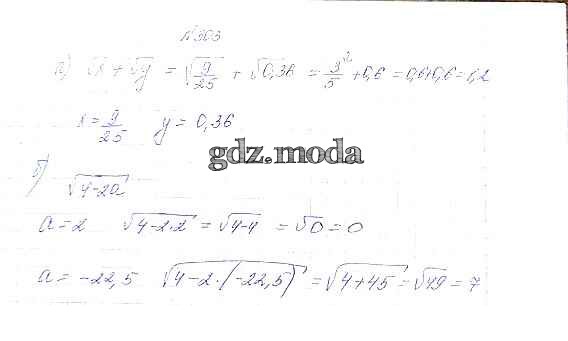 №303
а) √x + √y = √9/25 + √0,36 = 3/5 + 0,6 = 0,6+0,6 = 1,2
x = 9/25 y = 0,36
gdz.moda
б) √4-2a
a = 2 √4-2·2 = √4-4 = √0 = 0
a = -22,5 √4-2·(-22,5) = √4+45 = √49 = 7